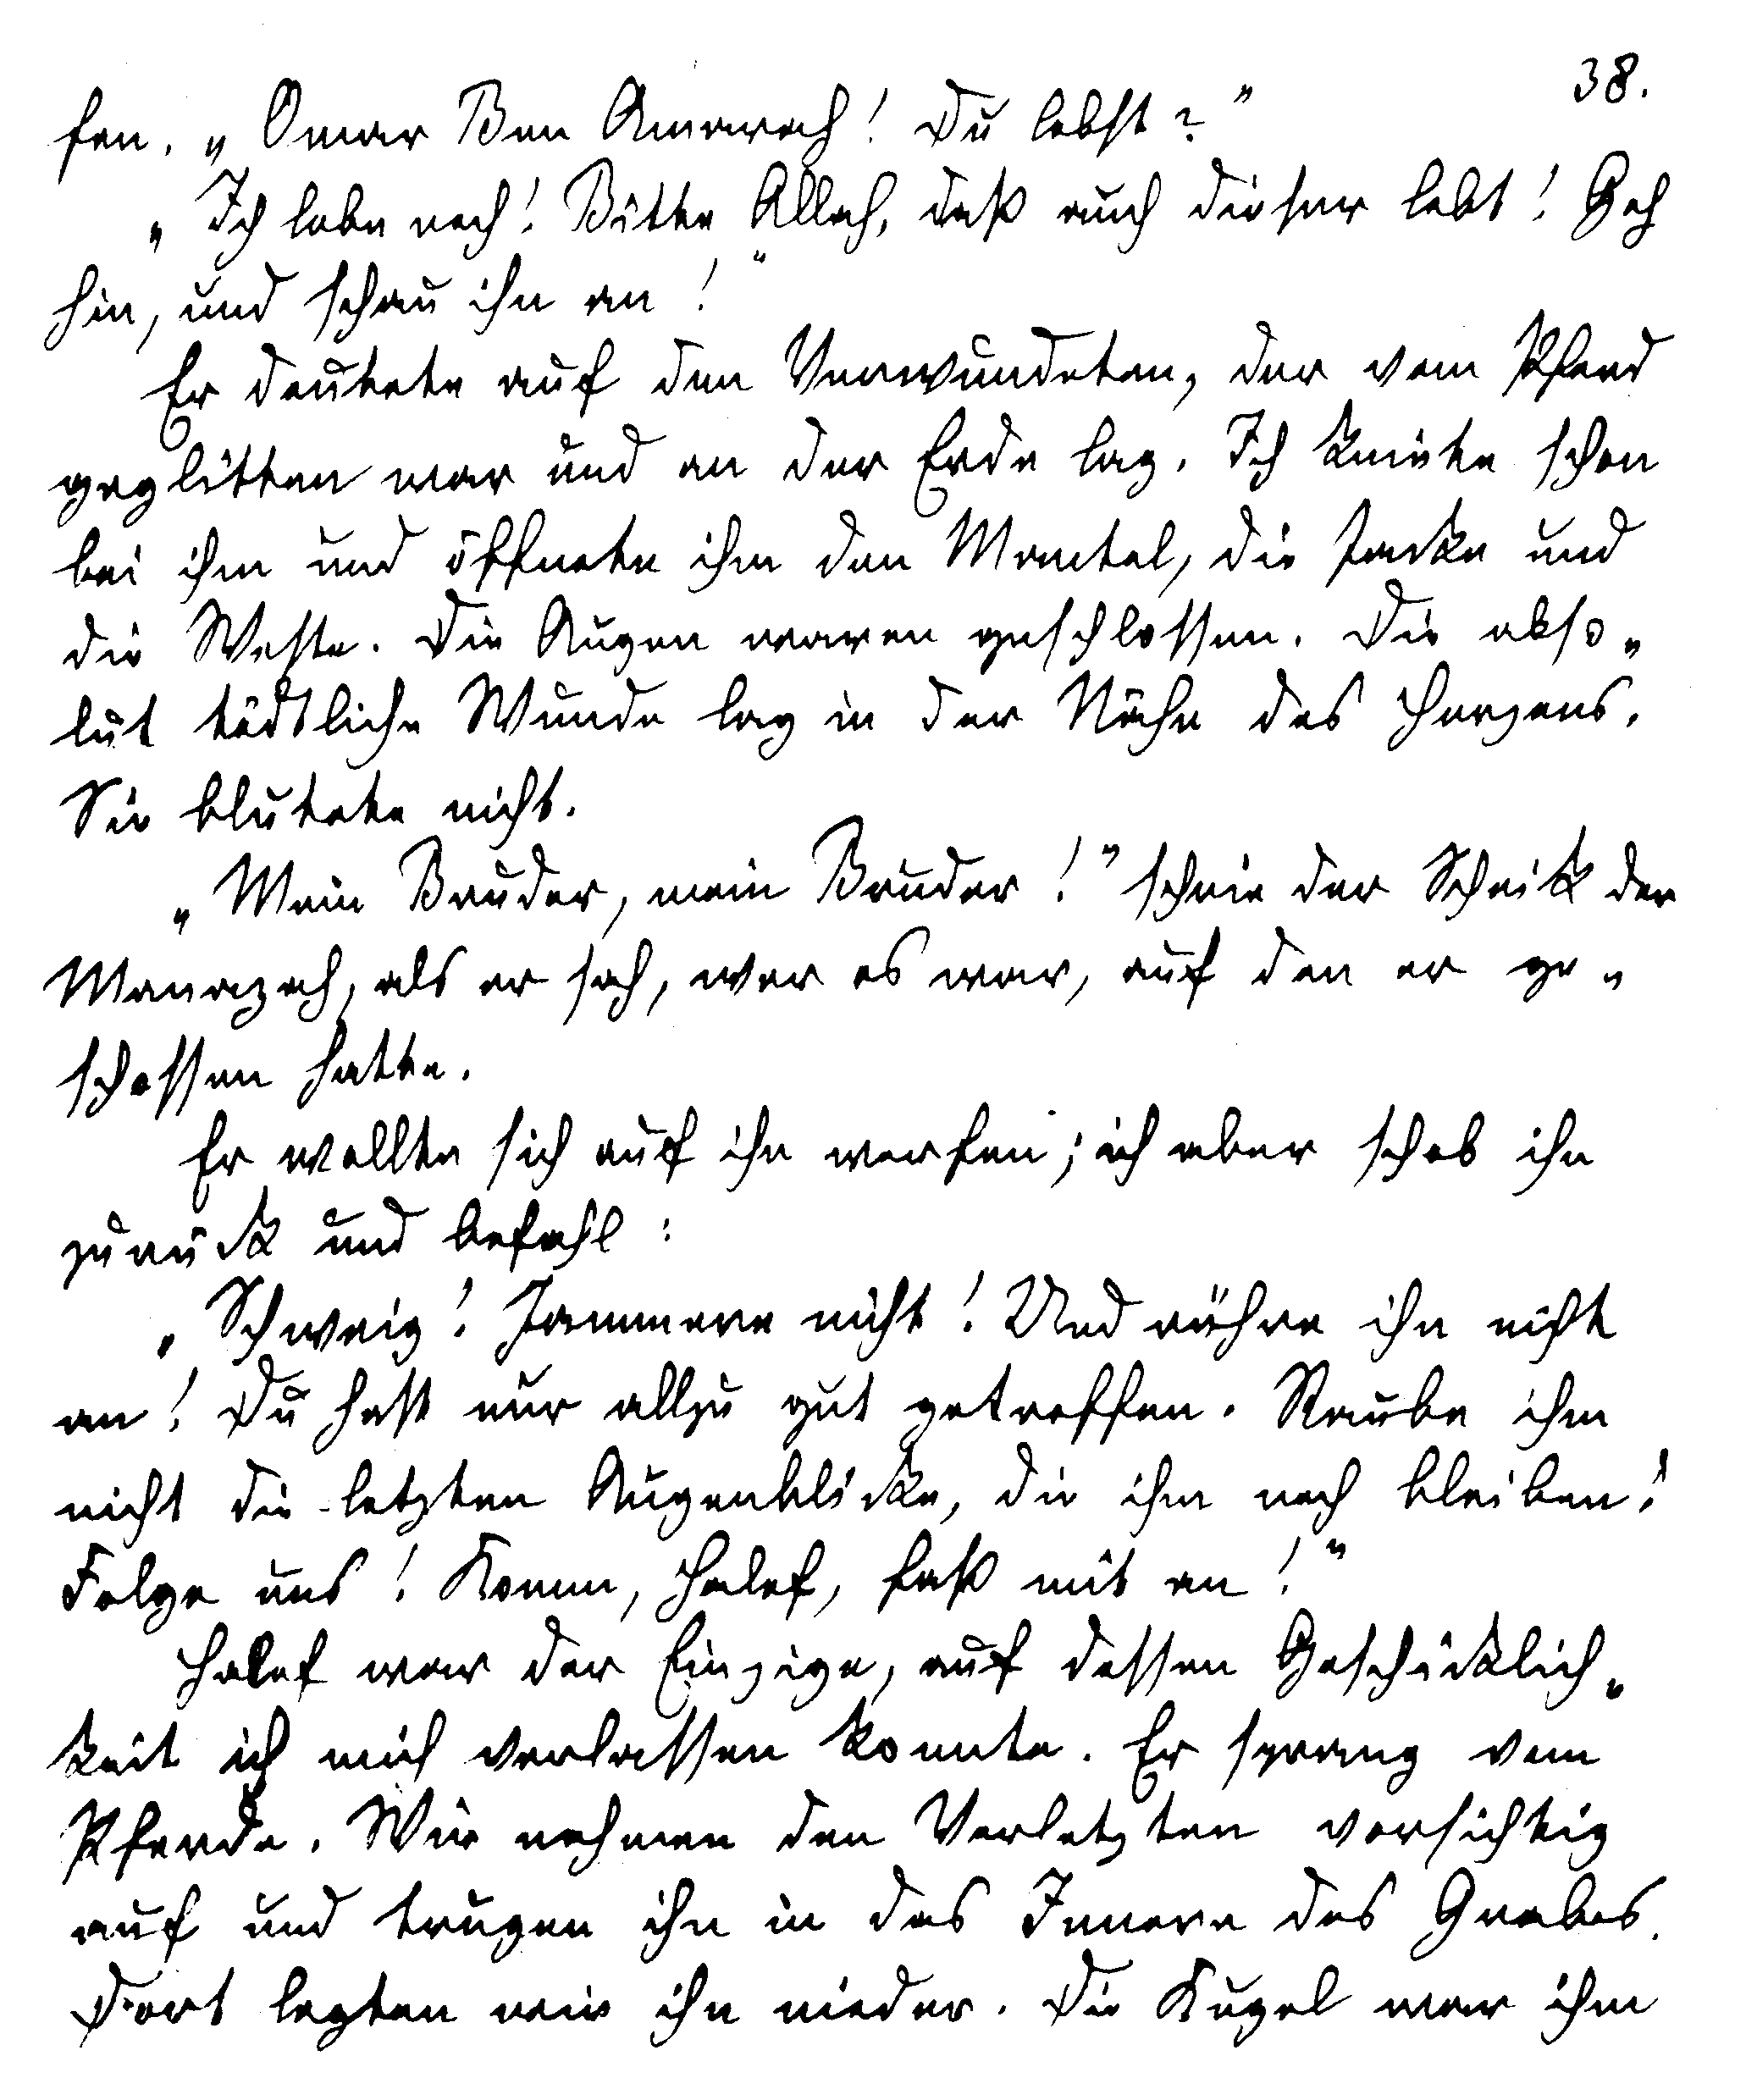 38.
fen. „Omar Ben Amarah! Du lebst?"
„Ich lebe noch! Bitte Allah, daß auch dieser lebt! Geh
hin, und schau ihn an!"
Er deutete auf den Verwundeten, der vom Pferd
geglitten war und an der Erde lag. Ich kniete schon
bei ihm und öffnete ihm den Mantel, die Jacke und
die Weste. Die Augen waren geschlossen. Die abso-
lut tödtliche Wunde lag in der Nähe des Herzens.
Sie blutete nicht.
„Mein Bruder, mein Bruder!" schrie der Scheik der
Manazah, als er sah, wer es war, auf den er ge-
schossen hatte.
Er wollte sich auf ihn werfen; ich aber schob ihn
zurück und befahl:
„Schweig! Jammere nicht! Und rühre ihn nicht
an! Du hast nur allzu gut getroffen. Raube ihm
nicht die letzten Augenblicke, die ihm noch bleiben!
Folge uns! Komm, Halef, faß mit an!"
Halef war der Einzige, auf dessen Geschicklich-
keit ich mich verlassen konnte. Er sprang vom
Pferde. Wir nahmen den Verletzten vorsichtig
auf und trugen ihn in das Innere des Grabes.
Dort legten wir ihn nieder. Die Kugel war ihm